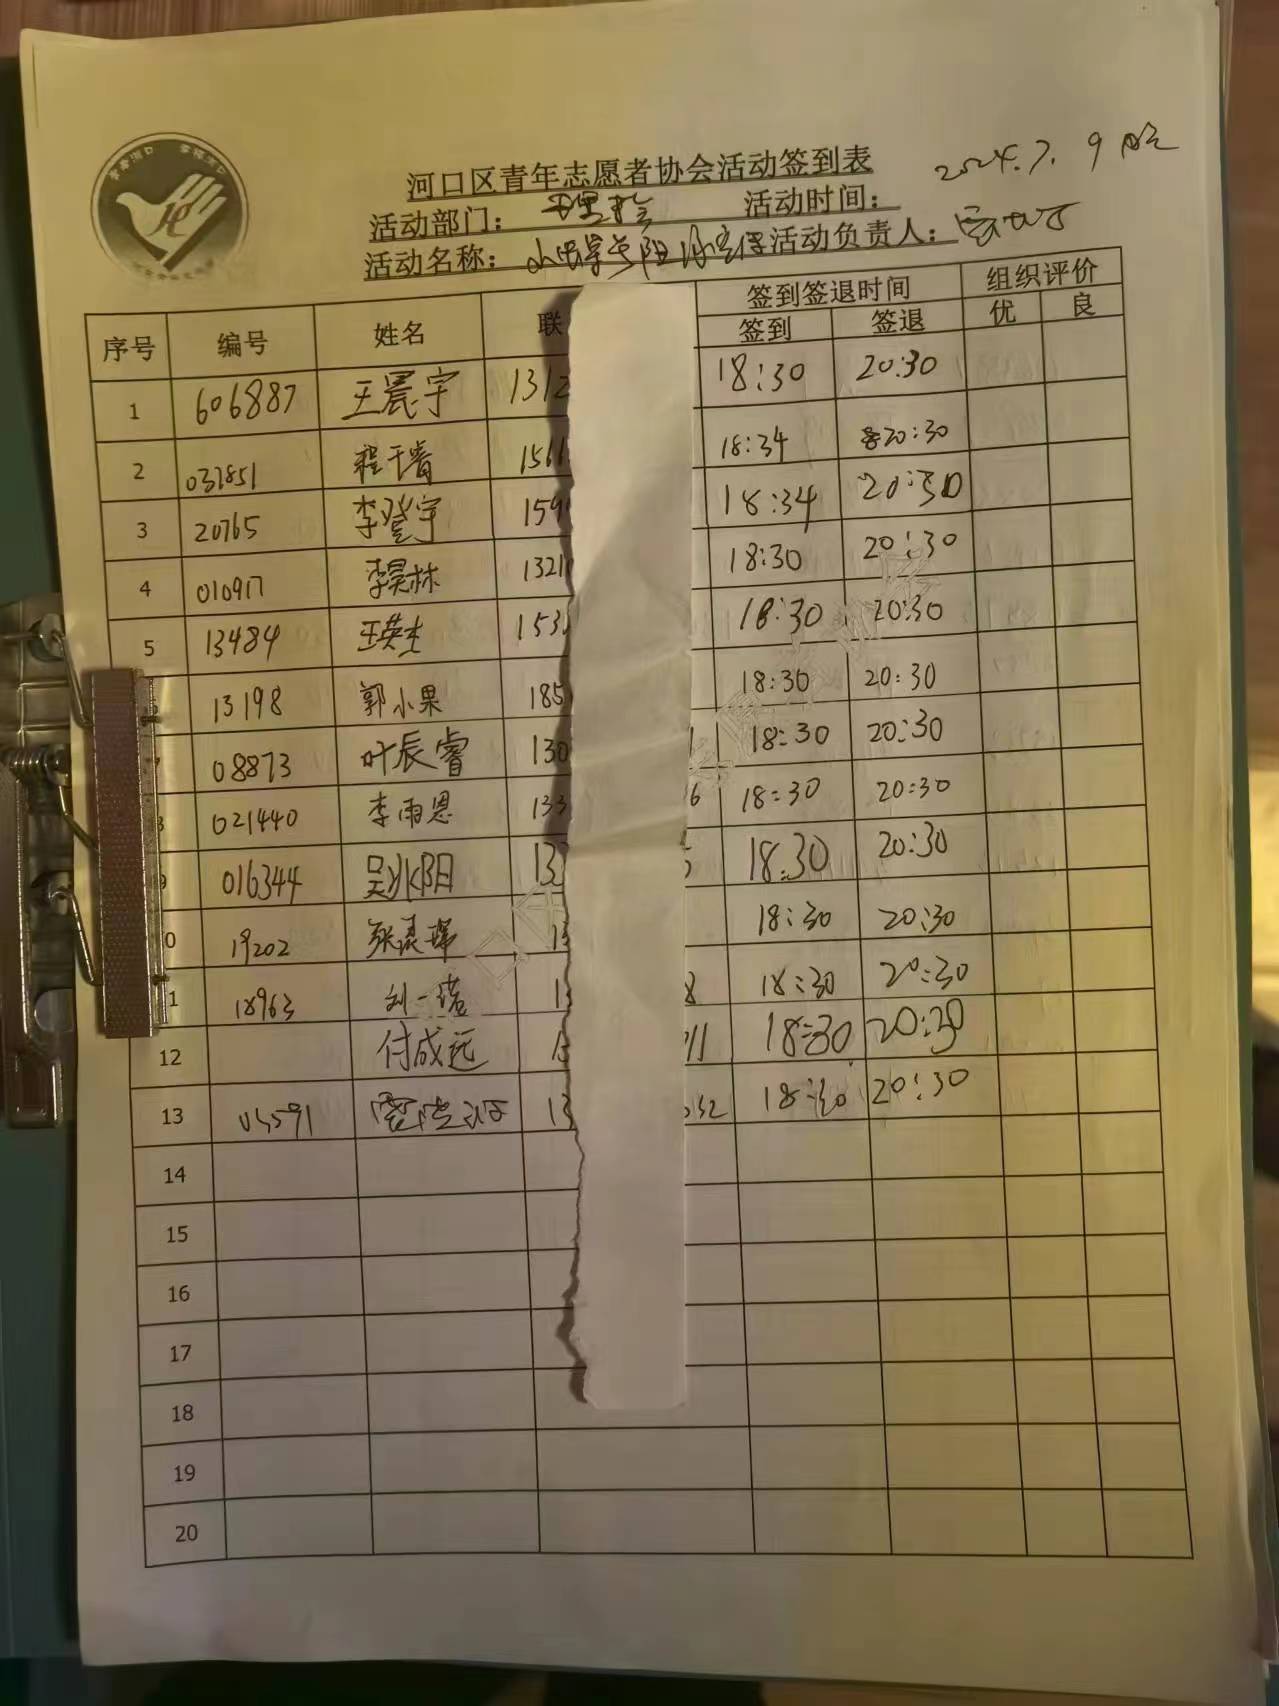 河口区青年志愿者协会活动签到表 2024.7.9
活动部门: 活动时间:
活动名称: 活动负责人:
序号 编号 姓名 联 签到签退时间 组织评价
签到 签退 优 良
1 606887 王晨宇 1312 18:30 20:30
2 031851 程于睿 1561 18:34 20:30
3 20765 李登宇 159 18:34 20:30
4 010917 李昊林 1321 18:30 20:30
5 13484 王英杰 153 18:30 20:30
13198 郭小果 185 18:30 20:30
08873 叶辰睿 130 18:30 20:30
021440 李雨恩 133 6 18:30 20:30
016344 吴沐阳 13 18:30 20:30
0 19202 13 18:30 20:30
1 18963 刘一诺 1 8 18:30 20:30
12 付成远 1 11 18:30 20:30
13 03591 13 032 18:30 20:30
14
15
16
17
18
19
20